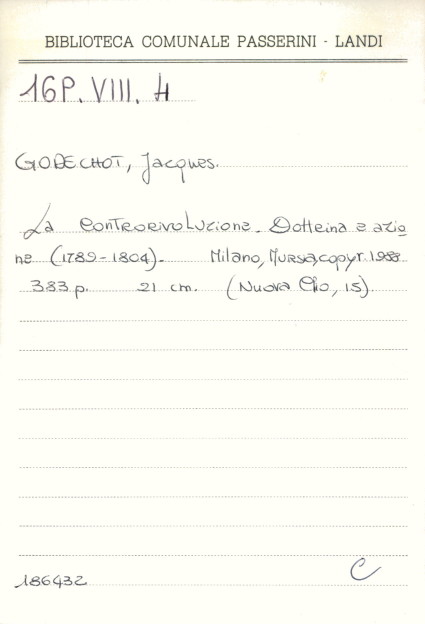 BIBLIOTECA COMUNALE PASSERINI - LANDI
16P. VIII. 4
GODECHOT, Jacques.
La controrivoluzione. Dottrina e azio
ne (1789-1804). Milano, Mursia, copyr. 1988
383 p. 21 cm. (Nuova Clio, 15).
186432
C